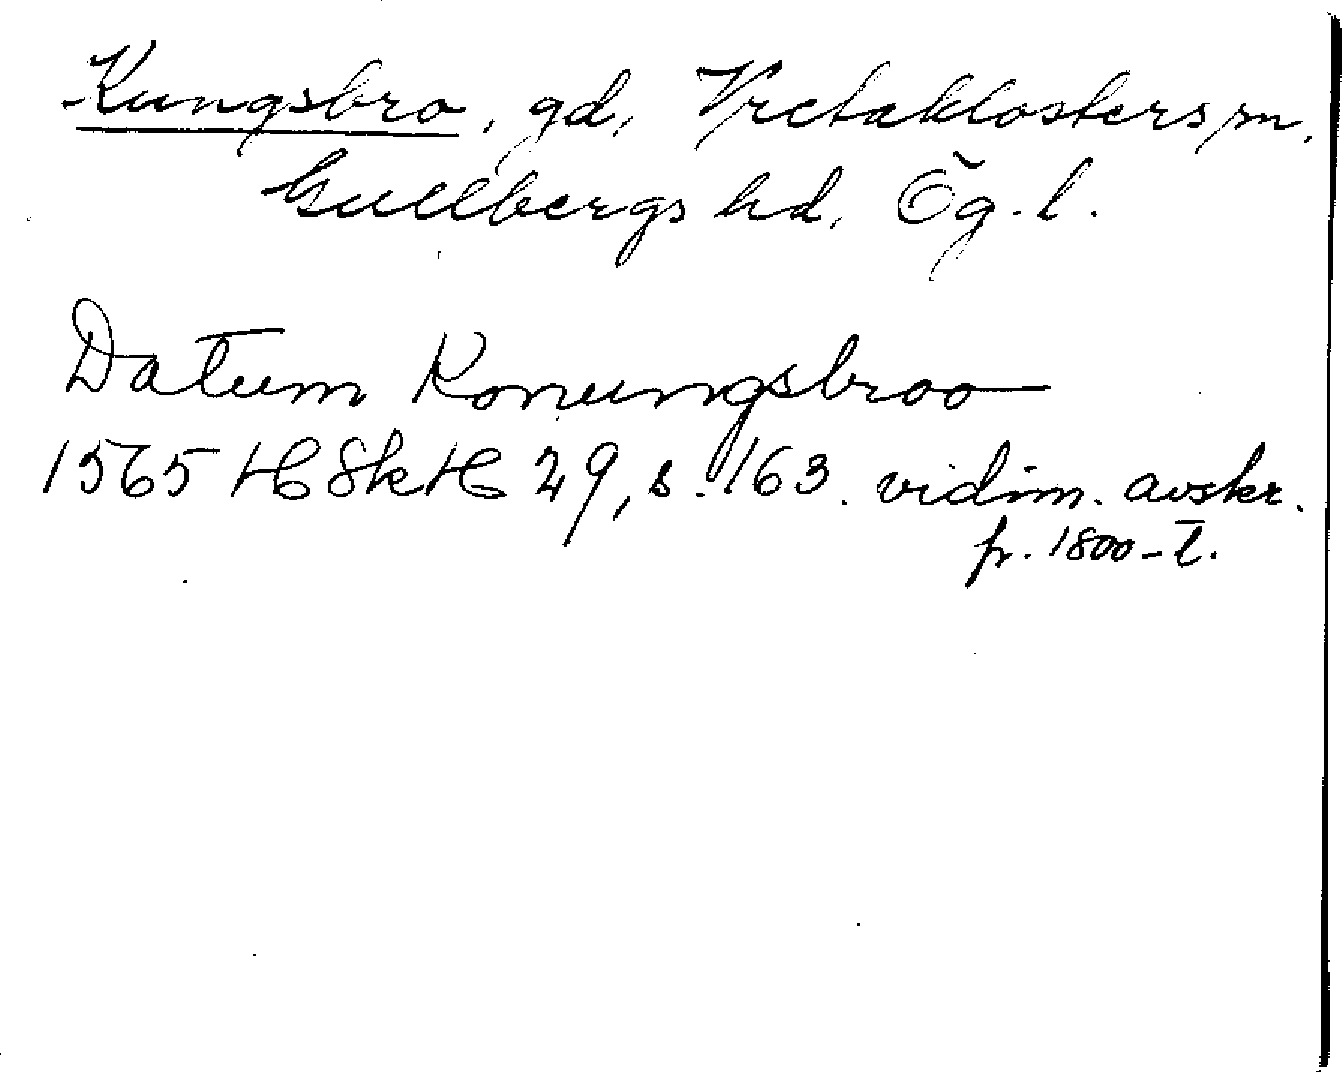 Kungsbro, gd, Vretaklosters sn.
Gullbergs hd, Ög. l.
Datum Konungsbroo
1565 HSkH 29, s. 163. vidim. avskr.
fr. 1800-t.